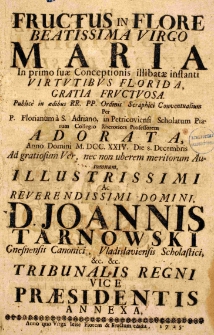 FRUCTUS IN FLORE
BEATISSIMA VIRGO
MARIA
In primo suæ Conceptionis illibatæ instanti
VIRTUTIBUS FLORIDA,
GRATIA FRUCTUOSA.
Publicè in ædibus RR. PP. Ordinis Seraphici Conventualium
Per
P. Florianum à S. Adriano, in Petricoviensi Scholarum Piarum Collegio Rhetorices Professorem
ADORATA,
Anno Domini M. DCC. XXIV. Die 8. Decembris
Ad gratiosum Ver, nec non uberem meritorum Autumnum,
ILLUSTRISSIMI
Ac
REVERENDISSIMI DOMINI,
D. JOANNIS
TARNOWSKI
Gnesnensis Canonici, Vladislaviensis Scholastici,
&c. &c.
TRIBUNALIS REGNI
VICE
PRÆSIDENTIS
ANNEXA.
Anno quo Virgo sine